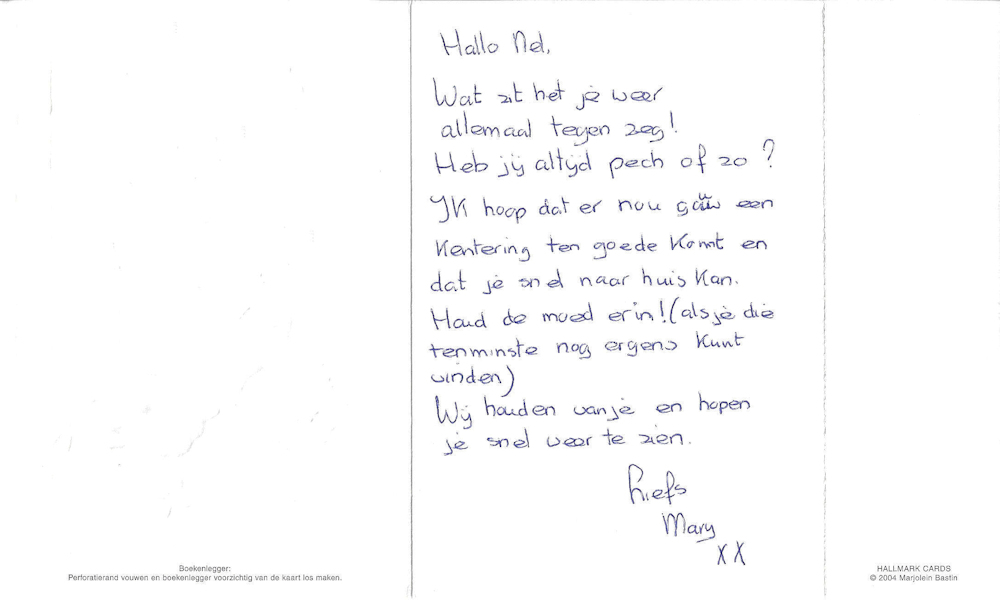 Hallo Nel,
Wat zit het je weer
allemaal tegen zeg!
Heb jij altijd pech of zo?
Ik hoop dat er nou gauw een
Kentering ten goede Komt en
dat je snel naar huis Kan.
Houd de moed erin! (als je die
tenminste nog ergens Kunt
vinden)
Wij houden van je en hopen
je snel weer te zien.
Liefs
Mary
XX
Boekenlegger:
Perforatierand vouwen en boekenlegger voorzichtig van de kaart los maken.
HALLMARK CARDS
© 2004 Marjolein Bastin